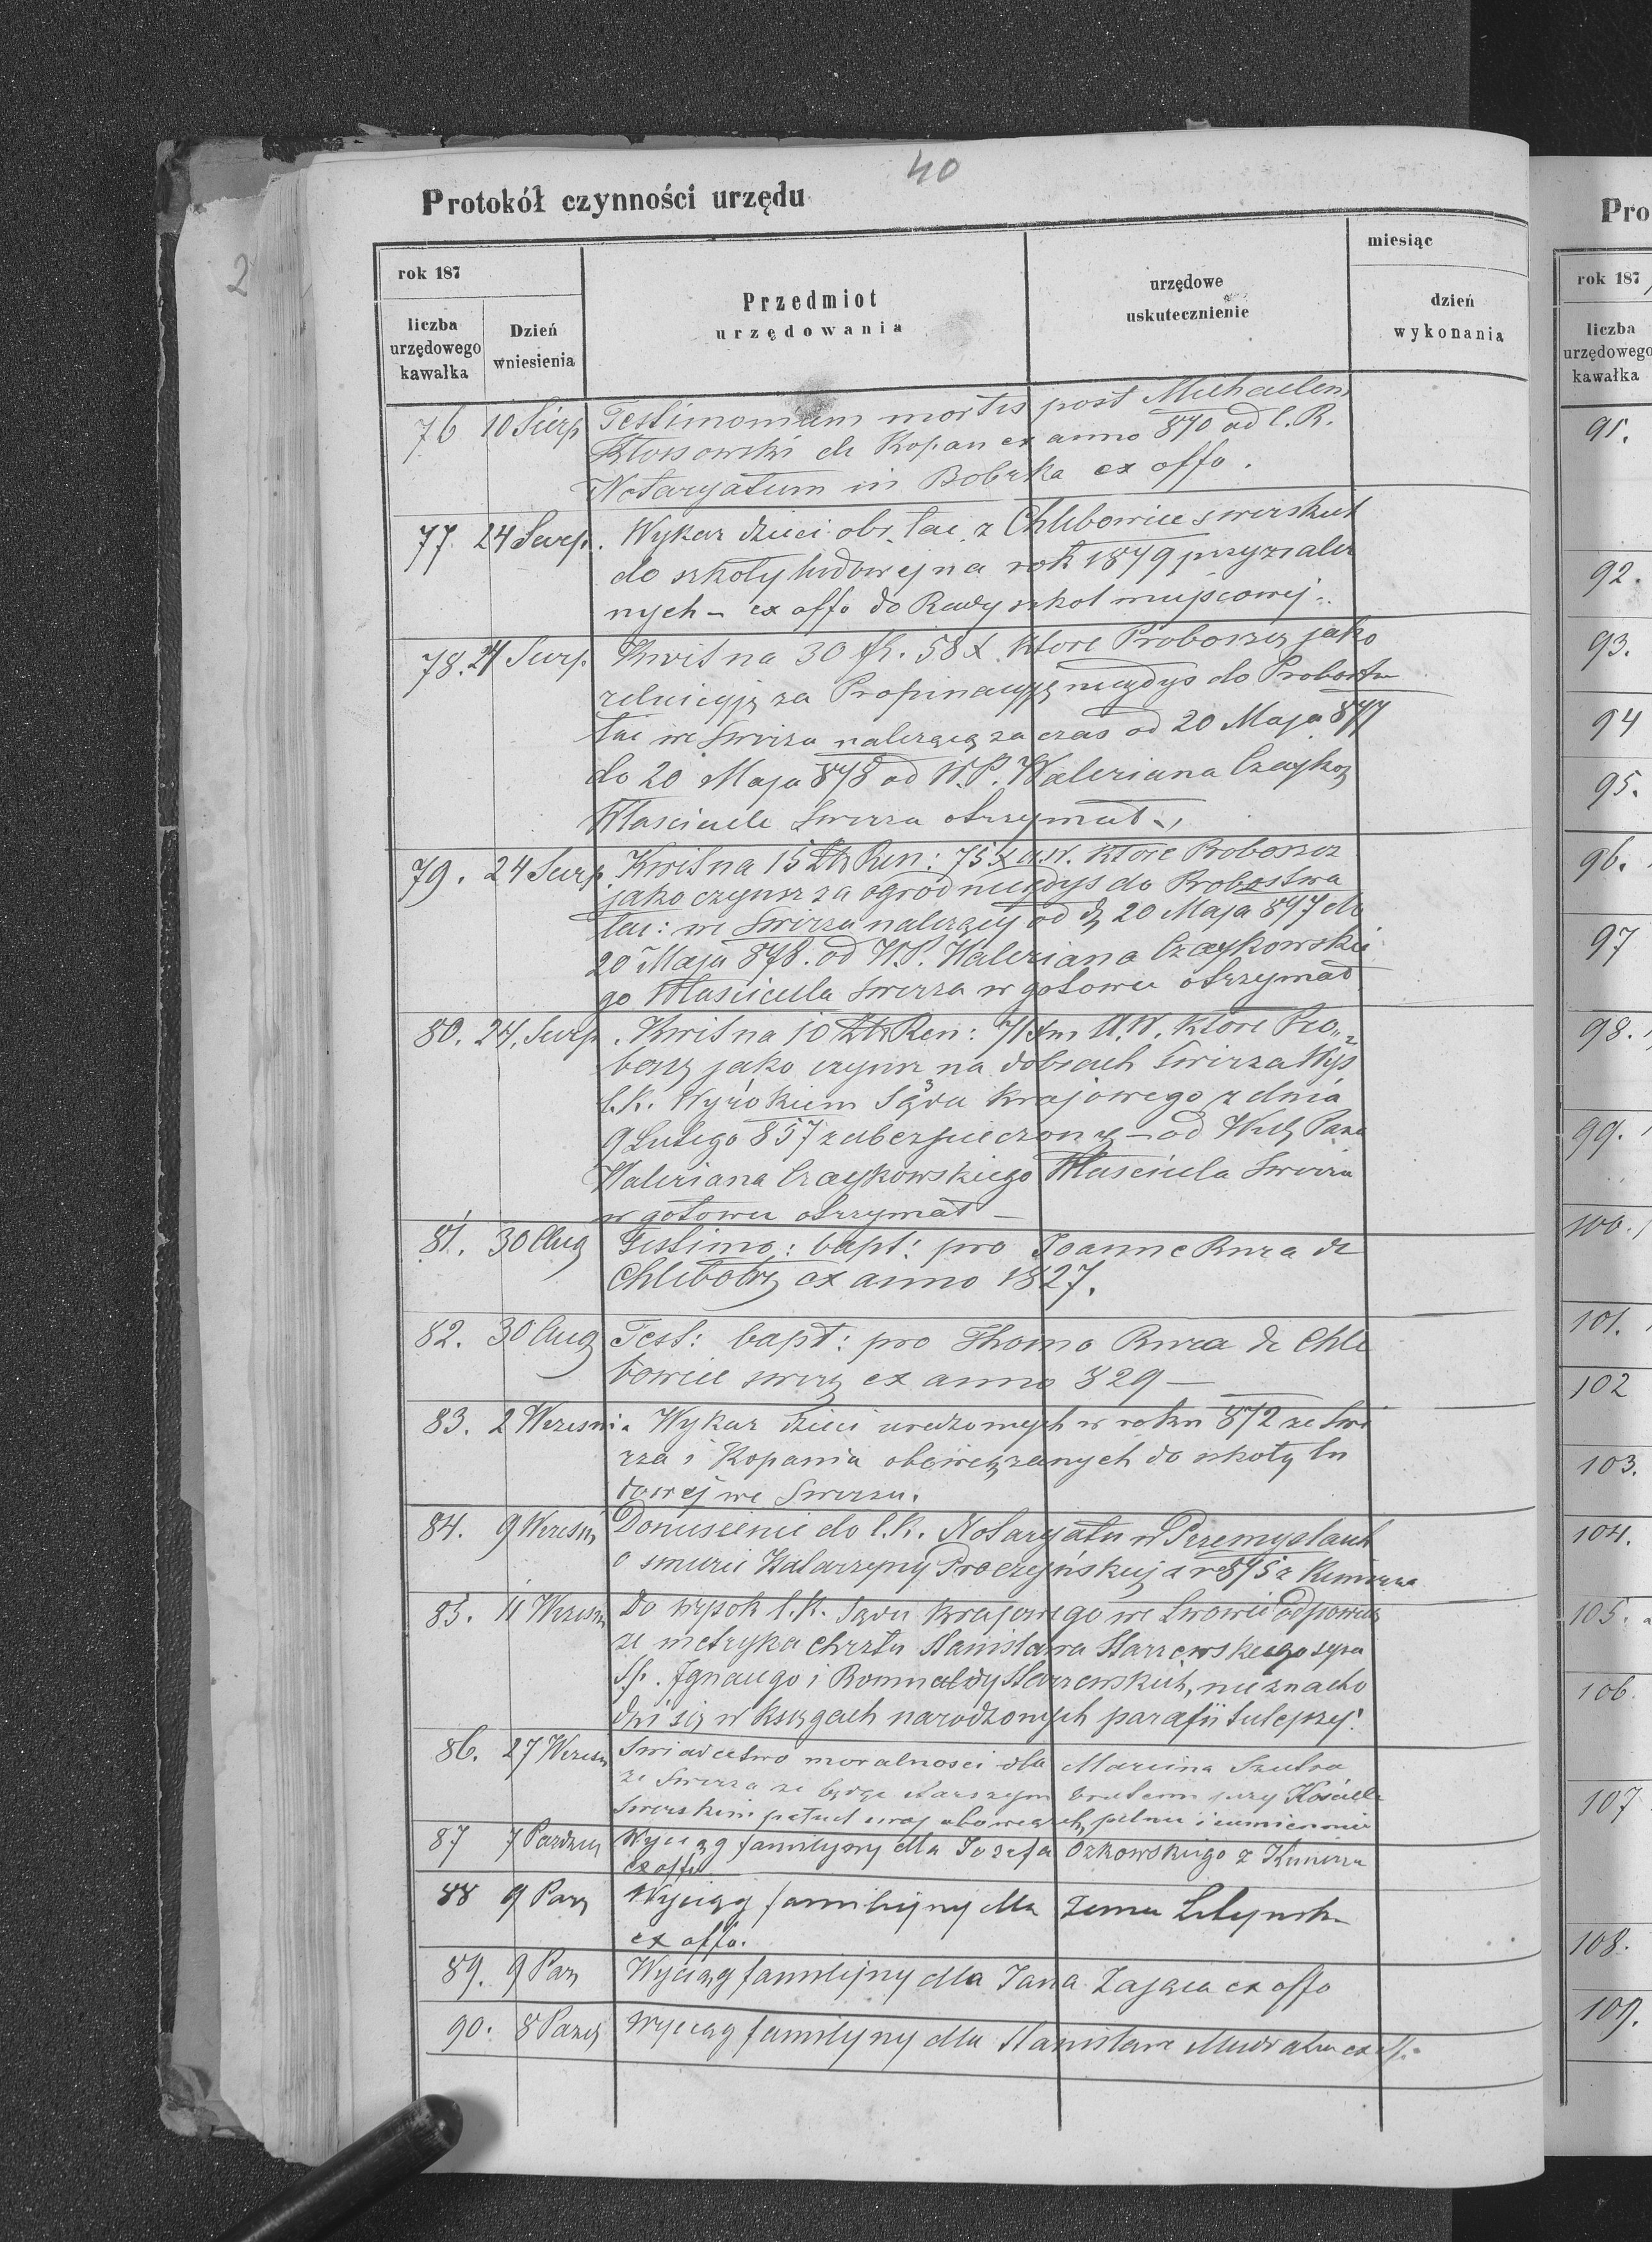 40
Protokół czynności urzędu
rok 187
liczba urzędowego kawałka
Dzień wniesienia
Przedmiot urzędowania
urzędowe uskutecznienie
miesiąc
dzień wykonania
76 10 Sierp Testimonium mortis post Michaelem
Kłossowski de Kopan ex anno 870 ad C. R.
Notaryatum in Bobrka ex offo.
77. 24 Sierp. Wykaz dzieci obr. łac. z Chlebowice swirskich
do szkoły ludowej na rok 1879 przyzialu
nych - ex offo do Rady szkol miejscowej.
78. 24 Sierp. Kwit na 30 fl. 58 x które Proboszcz jako
relucyję za Propinacyję niegdys do Probostw
łac we Swirzu należącą za czas od 20 Maja 877
do 20 Maja 878 od W.P. Waleriana Czayko
Własciciela Swirza otrzymał.
79. 24 Sierp. Kwit na 15 Złr Ren: 75 x a.w. które Proboszcz
jako czynsz za ogród niegdys do Probostwa
łac: we Swirzu należący od 20 Maja 877 do
20 Maja 878. od W.P. Waleriana Czaykowskie
go Własciciela Swirza w gotowce otrzymał
80. 24. Sierp. Kwit na 10 Złr Ren: A.W. które Pro„
boszcz jako czynsz na dobrach Swirza Wys
C.K. Wyrokiem Sądu Krajowego z dnia
9 Lutego 857 zabezpieczony - od Pana
Waleriana Czaykowskiego Własciciela Swirza
w gotowce otrzymał -
81. 30 Aug Testimo: bapt: pro Joanne Buza de
Chlebow ex anno 1827.
82. 30 Aug Test: bapt: pro Thoma Buza de Chle
bowice swirz ex anno 829 -
83. 2 Wrzesni. Wykaz dzieci urodzonych w roku 872 ze Swi
rza i Kopania obowiązanych do szkoły lu
dowej we Swirzu.
84. 9 Wrzesn Doniesienie do C.K. Notaryatu w Przemyslanach
o smierci Katarzyny Proczyńskiej z r 875 z Kimirza
85. 11 Wrzesn Do wysok C.K. Sądu Krajowego we Lwowie odpowiedz
ze metryka chrztu Stanisława Starzewskiego syna
Sp. Ignacego i Romualdy Starzewskich, nie znacho
dzi się w księgach narodzonych parafii tutejszej.
86. 27 Wrzesn Swiadectwo moralnosci dla Marcina Szutra
ze Swirza ze będąc starszym bratem przy Kościele
Swirskim pełnił swoj obowiązek pilnie i sumiennie
87 7 Pazdzier Wyciąg familyjny dla Jozefa Ozkowskiego z Kimirza
ex offo
88 9 Paz Wyciąg familijny dla
ex offo.
89. 9 Paz Wyciąg familijny dla Jana Zająca ex offo
90. 8 Pazdz Wyciąg familyjny dla Stanisława ex off.
2
Pro
rok 187
liczba urzędowego kawałka
91.
92.
93.
94
95.
96.
97
98.
99.
100.
101.
102
103.
104.
105.
106.
107
108.
109.